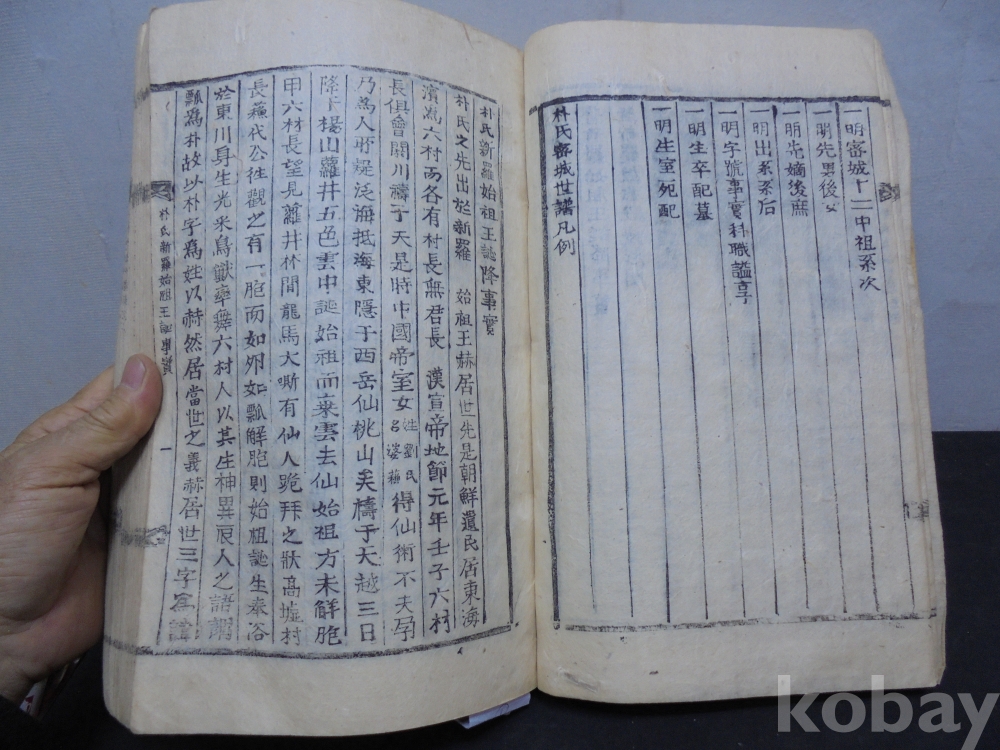 一明密城十二中祖系次
一明先男後女
一明先嫡後庶
一明出系系后
一明字號事實科職謚享
一明生卒配墓
一明生室死配
朴氏密城世譜凡例
朴氏新羅始祖王誕降事實
朴氏之先出於新羅 始祖王赫居世先是朝鮮遺民居東海
濱爲六村而各有村長無君長 漢宣帝地節元年壬子六村
長俱會閼川禱于天是時中國帝室女姓劉氏名婆蘇得仙術不夫孕
乃爲人所疑泛海抵海東隱于西岳仙桃山矣禱于天越三日
降于楊山蘿井五色雲中誕始祖而乘雲去仙始祖方未解胞
甲六村長望見蘿井林間龍馬大嘶有仙人跪拜之狀高墟村
長蘇伐公往觀之有一胞而如卵如瓢解胞則始祖誕生奉浴
於東川身生光釆鳥獸率舞六村人以其生神異辰人之語謂
瓢爲朴故以朴字爲姓以赫然居當世之義赫居世三字爲諱
朴氏新羅始祖王誕事實
一
kobay